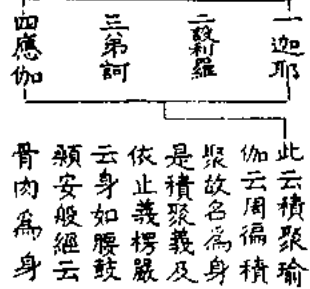 一迦耶
二設利羅
三弟訶
四應伽
此云積聚瑜
伽云周徧積
聚故名爲身
是積聚義及
依止義楞嚴
云身如腰鼓
顙安般經云
骨肉爲身